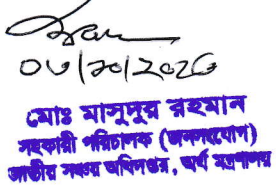 ০৬/১০/২০২৫
মোঃ মাসুদুর রহমান
সহকারী পরিচালক (জনসংযোগ)
জাতীয় সঞ্চয় অধিদপ্তর, অর্থ মন্ত্রণালয়